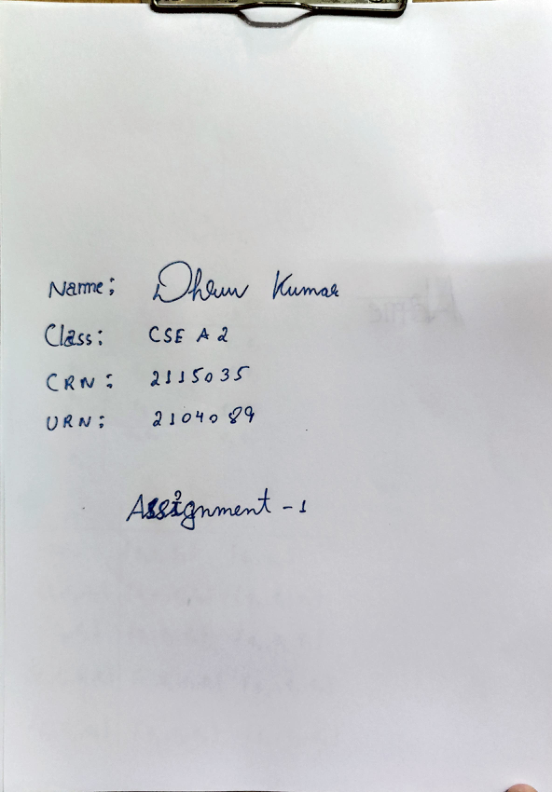 Name: Dhruv Kumar
Class: CSE A2
CRN: 2115035
URN: 2104089
Assignment - 1